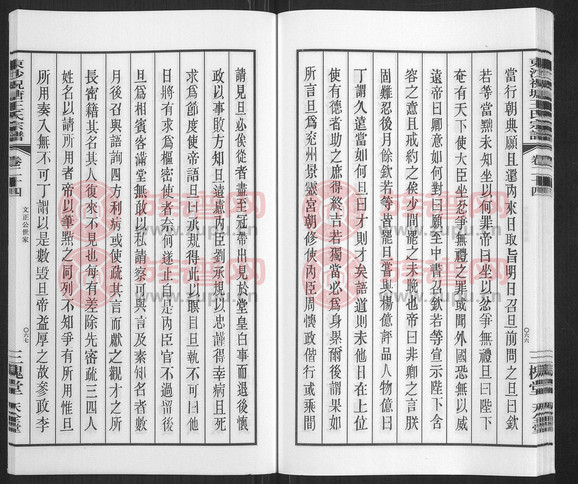 東沙祝塘王氏宗譜
卷二十四
〇六六
三槐堂
當行朝典願且還內來日取旨明日召旦前問之旦曰欽
若等當黜未知坐以何罪帝曰坐以忿爭無禮旦曰陛下
奄有天下使大臣坐忿爭無禮之罪或聞外國恐無以威
遠帝曰卿意如何對曰願至中書召欽若等宣示陛下含
容之意且戒約之俟少間罷之未晚也帝曰非卿之言朕
固難忍後月餘欽若等皆罷旦嘗與楊億評品人物億曰
丁謂久遠當如何旦曰才則才矣語道則未他日在上位
使有德者助之庶得終吉若獨當必為身累爾後謂果如
所言旦為兗州景靈宮朝修使內臣周懷政偕行或乘間
請見旦必俟從者盡至冠帶出見於堂皇白事而退後懷
政以事敗方知旦遠慮內臣劉承規以忠謹得幸病且死
求為節度使帝語旦曰承規待此以瞑目旦執不可曰他
日將有求為樞密使者奈何遂止自是內臣官不過留後
旦為相賓客滿堂無敢以私請察可與言及素知名者數
月後召與語詢訪四方利病或使疏其言而獻之觀才之所
長密籍其名其人復來不見也每有差除先密疏三四人
姓名以請所用者帝以筆點之同列不知爭有所用惟旦
所用奏入無不可丁謂以是數毀旦帝益厚之故參政李
東沙祝塘王氏宗譜
卷二十四
文正公世家
〇六七
三槐堂